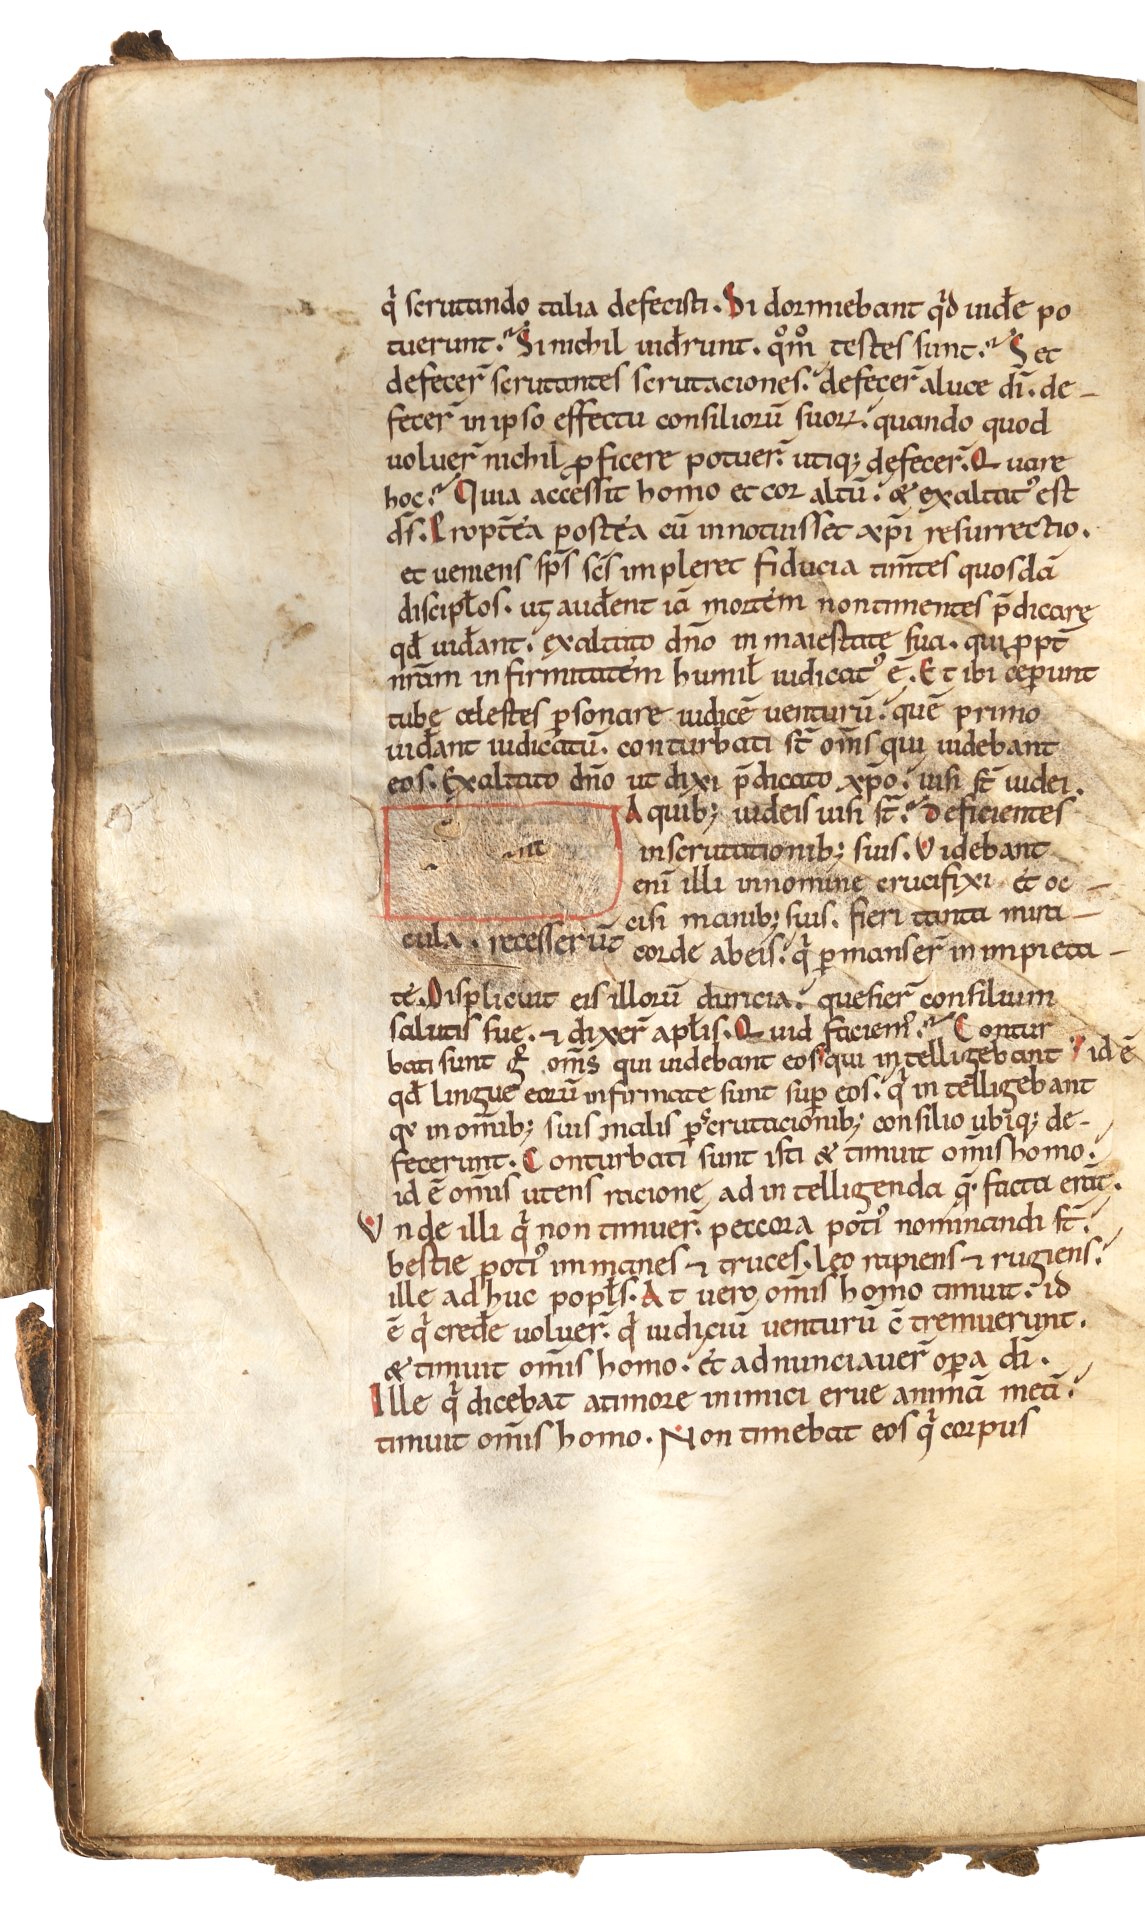 q̄ scrutando talia defecisti. Si dormiebant qͥd uidēe po
tuerunt. Si nichil uiđrunt. qͦmͦ testes sunt. S et
defecer̄ scrutantes scrutaciones. defecer̄ a luce dī. de-
fecer̄ in ipso effectu consiliorū suoꝝ. quando quod
uoluer̄ nichil ꝓficere potuer̄. utiqꝫ defecer̄. Quare
hoc. Quia accessit homo et cor altū. & exaltatꝰ est
ds̄. Propt̄ea postea cū innotuisset xp̄i resurrectio.
et ueniens sp̄s sc̄s impleret fiducia tim̄tes quosdā
discipłos. ut auđent iā mortem non timentes p̄dicare
qđ uiđant. exaltato dn̄o in maiestate sua. qui ꝓpt̄
nr̄am infirmitatem humił iudicatꝰ ē. Et ibi ceperunt
tubę celestes ꝑsonare iudicē uenturū. quē primo
uiđant iudicatū. conturbati st̄ om̄s qui uidebant
eos. Exaltato dn̄o ut dixi p̄dicato xp̄o. uisi st̄ iudei.
A quibꝫ iudeis uisi st̄. Deficientes
in scrutationibꝫ suis. Videbant
enī illi in nomine crucifixi et oc-
cisi manibꝫ suis. fieri tanta mira-
cula. recesserūt corde ab eis. q̄ ꝑmanser̄ in impieta-
te. Displicuit eis illorū duricia. quesier̄ consilium
salutis sue. ⁊ dixer̄ apłis. Quid faciemꝰ. Contur
bati sunt gͦ om̄s qui uidebant eos qui intelligebant id ē
qđ lingue eorū infirmate sunt suꝑ eos. qͥ intelligebant
qe in om̄ibꝫ suis malis ꝑscrutacionibꝫ consilio ubiqꝫ de-
fecerunt. Conturbati sunt isti & timuit om̄is homo.
id ē om̄is utens racione ad intelligenda q̄ facta erāt.
Vnde illi qͥ non timuer̄ peccora potiꝰ nominandi st̄.
bestie potiꝰ immanes ⁊ truces. Leo rapiens ⁊ rugiens.
ille adhuc popłs. At uero om̄is homo timuit. id
ē qͥ cređe uoluer̄. qͥ iudiciū venturū c̄tremuerunt.
& timuit om̄is homo. Et adnunciauer̄ oꝑa dī.
Ille qͥ dicebat a timore inimici erue animā meā.
timuit om̄is homo. Non timebat eos qͥ corpus